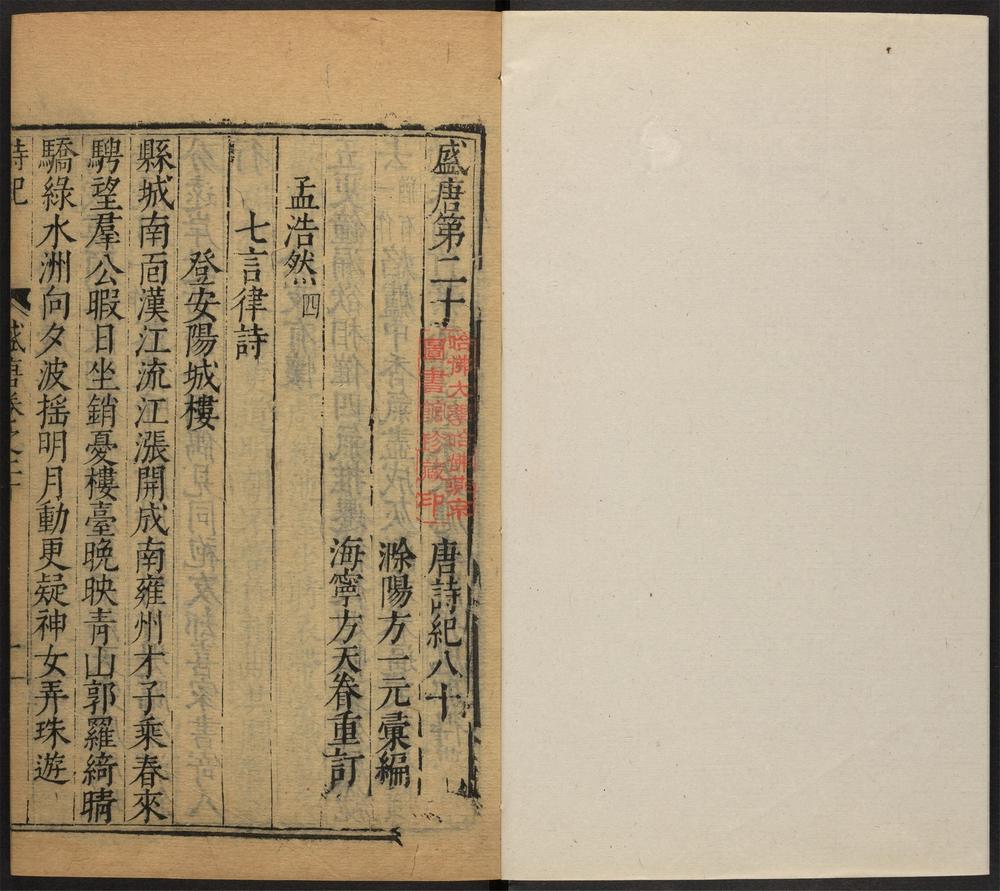 盛唐第二十 唐詩紀八十
滁陽方一元彙編
海寧方天眷重訂
孟浩然四
七言律詩
登安陽城樓
縣城南面漢江流江漲開成南雍州才子乘春來
騁望羣公暇日坐銷憂樓臺晚映青山郭羅綺晴
驕綠水洲向夕波搖明月動更疑神女弄珠遊
詩紀 盛唐卷之二十 一
哈佛大學哈佛燕京
圖書館珍藏印